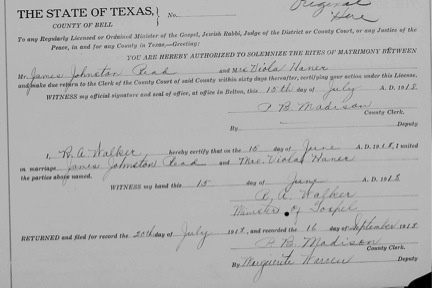 Original
Here
THE STATE OF TEXAS,
COUNTY OF BELL
No.
To any Regularly Licensed or Ordained Minister of the Gospel, Jewish Rabbi, Judge of the District or County Court, or any Justice of the
Peace, in and for any County in Texas,—Greeting:
YOU ARE HEREBY AUTHORIZED TO SOLEMNIZE THE RITES OF MATRIMONY BETWEEN
Mr. James Johnston Read and Mrs Viola Haner
and make due return to the Clerk of the County Court of said County within sixty days thereafter, certifying your action under this License,
WITNESS my official signature and seal of office, at office in Belton, this 15th day of July A. D. 1918
P. B. Madison
County Clerk.
By Deputy
I, R. A. Walker hereby certify that on the 15 day of June A. D. 1918, I united
in marriage James Johnston Read and Mrs. Viola Haner
the parties above named.
WITNESS my hand this 15 day of June A. D. 1918
R. A. Walker
Minister of Gospel
RETURNED and filed for record the 20th day of July 1918, and recorded the 16 day of September 1918
P. B. Madison
County Clerk.
By Marguerite Deputy